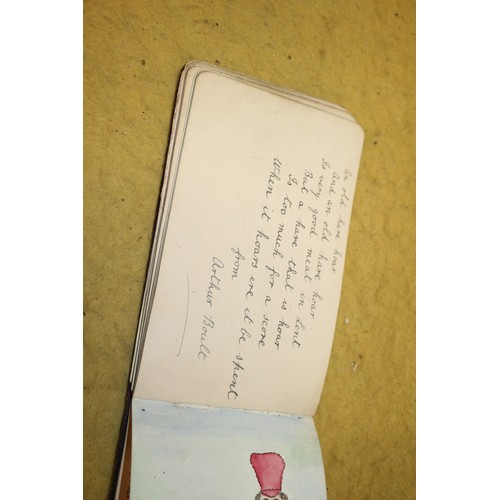 An old hare hoar
And an old hare hoar
Is very good meat in lent
But a hare that is hoar
Is too much for a score
When it hoars ere it be spent
from
Arthur Boult